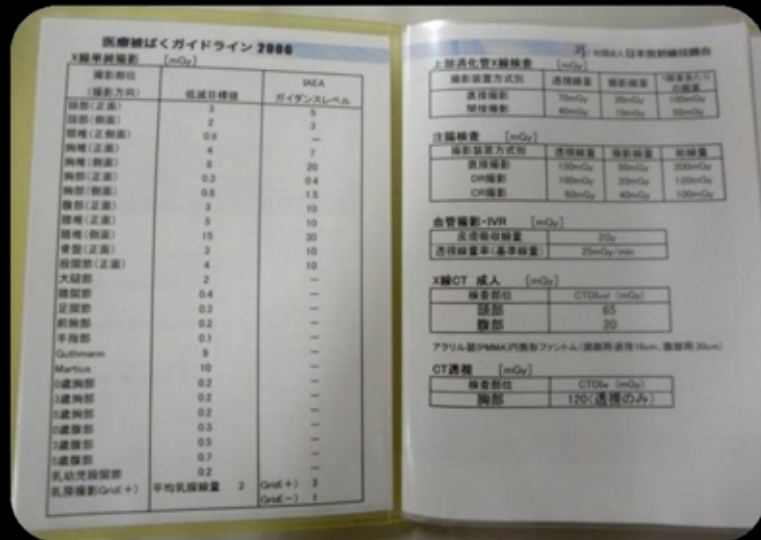 医療被ばくガイドライン 2006
X線単純撮影 [mGy]
撮影部位 (撮影方向) 低減目標値 IAEA ガイダンスレベル
頭部(正面) 3 5
頭部(側面) 2 3
頸椎(正側面) 0.9 ー
胸椎(正面) 4 7
胸椎(側面) 8 20
胸部(正面) 0.3 0.4
胸部(側面) 0.8 1.5
腹部(正面) 3 10
腰椎(正面) 5 10
腰椎(側面) 15 30
骨盤(正面) 3 10
股関節(正面) 4 10
大腿部 2 ー
膝関節 0.4 ー
足関節 0.3 ー
前腕部 0.2 ー
手指部 0.1 ー
Guthmann 9 ー
Martius 10 ー
0歳胸部 0.2 ー
3歳胸部 0.2 ー
5歳胸部 0.2 ー
0歳腹部 0.3 ー
3歳腹部 0.5 ー
5歳腹部 0.7 ー
乳幼児股関節 0.2 ー
乳房撮影Grid(+) 平均乳腺線量 2 Grid(+) 3
Grid(ー) 1
社団法人 日本放射線技師会
上部消化管X線検査 [mGy]
撮影装置方式別 透視線量 撮影線量 1検査あたりの線量
直接撮影 70mGy 30mGy 100mGy
間接撮影 40mGy 10mGy 50mGy
注腸検査 [mGy]
撮影装置方式別 透視線量 撮影線量 総線量
直接撮影 150mGy 50mGy 200mGy
DR撮影 100mGy 20mGy 120mGy
CR撮影 60mGy 40mGy 100mGy
血管撮影・IVR [mGy]
皮膚吸収線量 2Gy
透視線量率(基準線量) 25mGy/min
X線CT 成人 [mGy]
検査部位 CTDIvol (mGy)
頭部 65
腹部 20
アクリル製(PMMA)円筒形ファントム(頭部用:直径16cm, 腹部用:30cm)
CT透視 [mGy]
検査部位 CTDIw (mGy)
胸部 120(透視のみ)